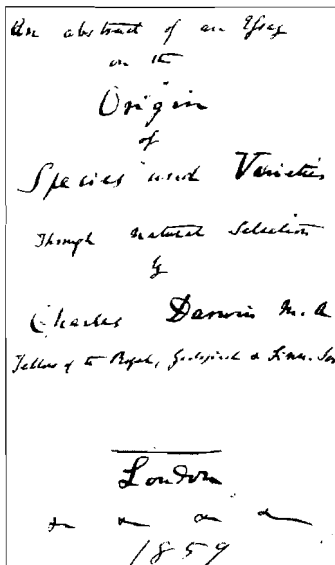 An abstract of an Essay
on the
Origin
of
Species and Varieties
Through natural Selection
by
Charles Darwin M. A
Fellow of the Royal, Geological & Linn. Soc
London
1859